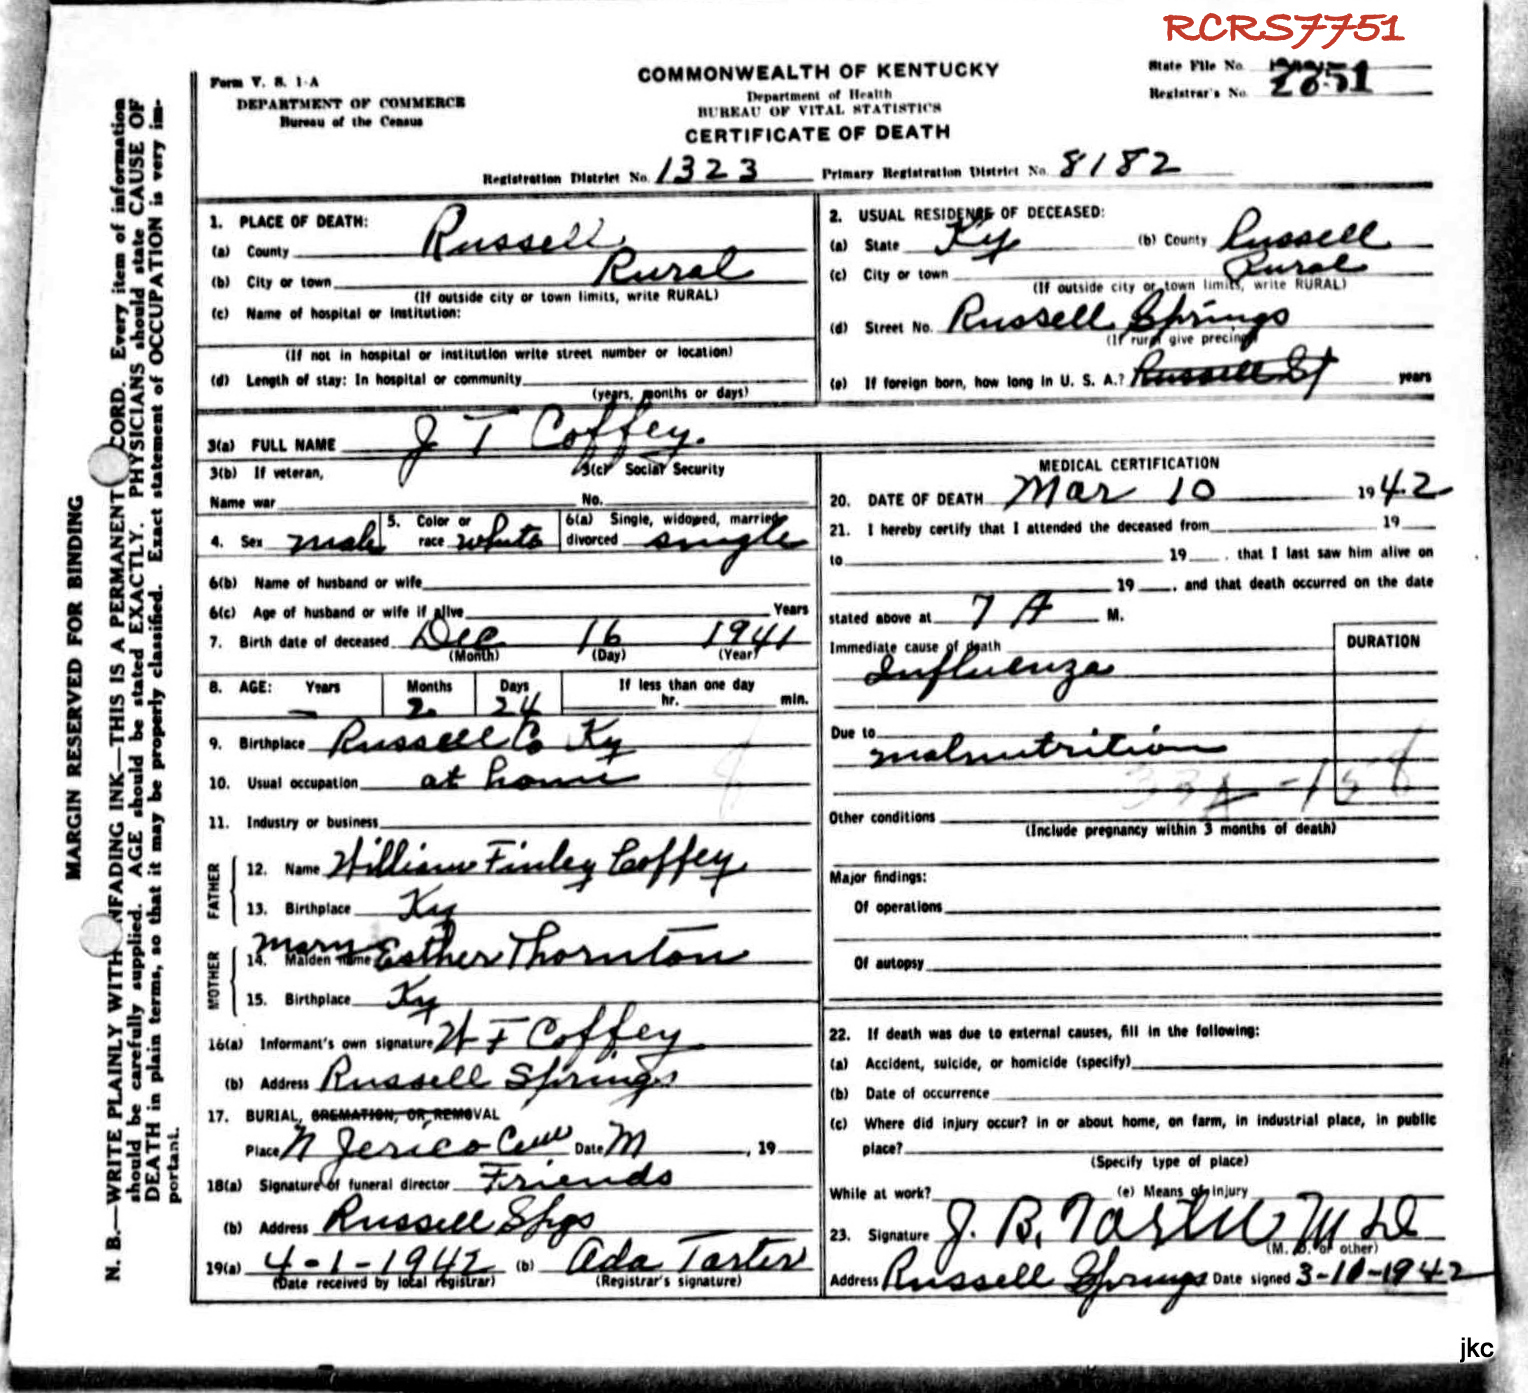 RCRS7751
Form V. S. 1-A
DEPARTMENT OF COMMERCE
Bureau of the Census
COMMONWEALTH OF KENTUCKY
Department of Health
BUREAU OF VITAL STATISTICS
CERTIFICATE OF DEATH
State File No.
Registrar's No.
Registration District No. 1323 Primary Registration District No. 8182
MARGIN RESERVED FOR BINDING
N. B.—WRITE PLAINLY WITH UNFADING INK—THIS IS A PERMANENT RECORD. Every item of information
should be carefully supplied. AGE should be stated EXACTLY. PHYSICIANS should state CAUSE OF
DEATH in plain terms, so that it may be properly classified. Exact statement of OCCUPATION is very im-
portant.
1. PLACE OF DEATH:
(a) County Russell
(b) City or town Rural
(If outside city or town limits, write RURAL)
(c) Name of hospital or institution:
(If not in hospital or institution write street number or location)
(d) Length of stay: In hospital or community
(years, months or days)
2. USUAL RESIDENCE OF DECEASED:
(a) State Ky (b) County Russell
(c) City or town Rural
(If outside city or town limits, write RURAL)
(d) Street No. Russell Springs
(If rural give precinct)
(e) If foreign born, how long in U. S. A.? Russell years
3(a) FULL NAME J T Coffey.
3(b) If veteran, 3(c) Social Security
Name war No.
4. Sex male 5. Color or race white 6(a) Single, widowed, married, divorced single
6(b) Name of husband or wife
6(c) Age of husband or wife if alive Years
7. Birth date of deceased Dec 16 1941
(Month) (Day) (Year)
8. AGE: Years Months Days If less than one day
— 2 24 hr. min.
9. Birthplace Russell Co Ky
10. Usual occupation at home
11. Industry or business
FATHER
12. Name William Finley Coffey
13. Birthplace Ky
MOTHER
14. Maiden name Mary Esther Thornton
15. Birthplace Ky
16(a) Informant's own signature W F Coffey
(b) Address Russell Springs
17. BURIAL, CREMATION, OR REMOVAL
Place N Jerico Cem Date M , 19
18(a) Signature of funeral director Friends
(b) Address Russell Spgs
19(a) 4-1-1942 (b) Ada Tarter
(Date received by local registrar) (Registrar's signature)
MEDICAL CERTIFICATION
20. DATE OF DEATH Mar 10 1942
21. I hereby certify that I attended the deceased from 19
to 19 , that I last saw him alive on
19 , and that death occurred on the date
stated above at 7 A M.
Immediate cause of death DURATION
Influenza
Due to
malnutrition
Other conditions
(Include pregnancy within 3 months of death)
Major findings:
Of operations
Of autopsy
22. If death was due to external causes, fill in the following:
(a) Accident, suicide, or homicide (specify)
(b) Date of occurrence
(c) Where did injury occur? in or about home, on farm, in industrial place, in public
place?
(Specify type of place)
While at work? (e) Means of injury
23. Signature J. B. Tarter M D
(M. D. or other)
Address Russell Springs Date signed 3-10-1942
jkc